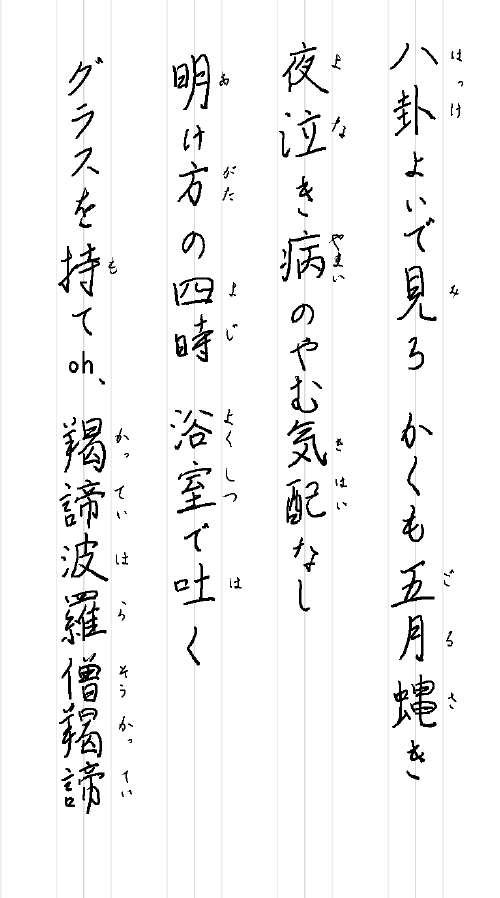 八卦よいで見ろ　かくも五月蝿き
はっけ　み　ごるさ
夜泣き病のやむ気配なし
よな　やまい　きはい
明け方の四時　浴室で吐く
あ　がた　よじ　よくしつ　は
グラスを持てoh、羯諦波羅僧羯諦
も　かっていはらそうかってい